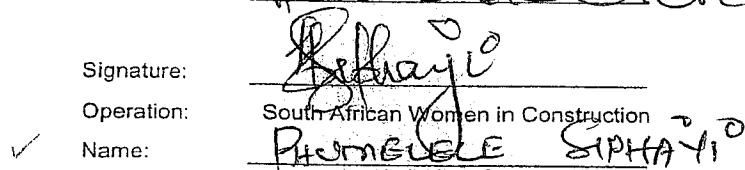 Signature:
Operation: South African Women in Construction
Name: PHUMELELE SIPHAYI